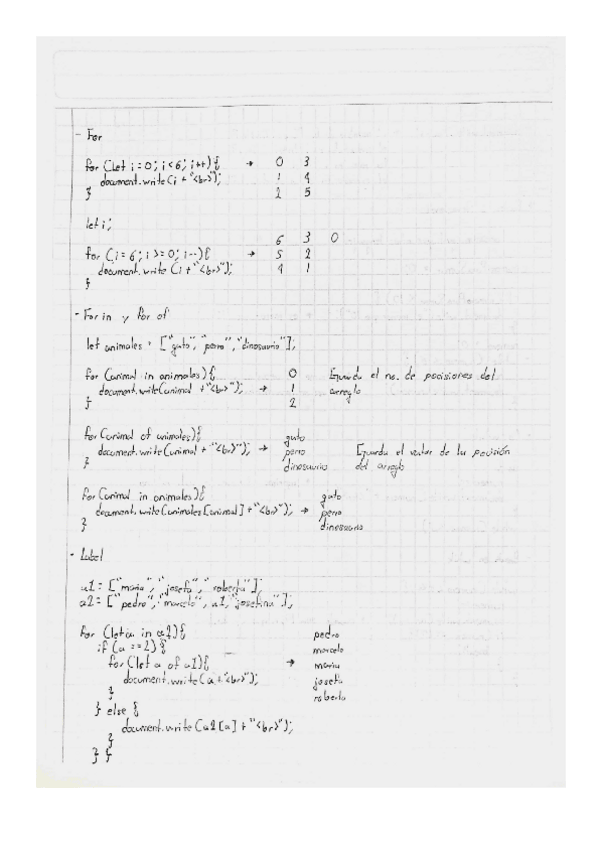 - For
for (let i = 0; i < 6; i++) { → 0 3
document.write(i + "<br>"); 1 4
} 2 5
let i;
6 3 0
for (i = 6; i >= 0; i--) { → 5 2
document.write (i + "<br>"); 4 1
}
- For in y for of
let animales = ["gato", "perro", "dinosaurio"];
for (animal in animales) { 0 Guarda el no. de posiciones del
document.write(animal + "<br>"); → 1 arreglo
} 2
for (animal of animales) { gato
document.write(animal + "<br>"); → perro Guarda el valor de la posición
} dinosaurio del arreglo
for (animal in animales) { gato
document.write(animales[animal] + "<br>"); → perro
} dinosaurio
- Label
a1 = ["maria", "josefa", "roberta"];
a2 = ["pedro", "marcelo", a1, "josefina"];
for (let a in a2) { pedro
if (a == 2) { marcelo
for (let a of a1) { → maria
document.write(a + "<br>"); josefa
} roberta
} else {
document.write(a2[a] + "<br>");
}
} }